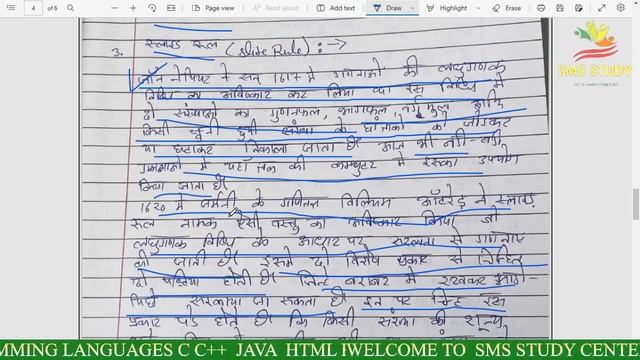 4 of 6
Page view
Read aloud
Add text
Draw
Highlight
Erase
SMS STUDY
LET'S LEARN TOGETHER
3. स्लाइड रूल (Slide Rule) :→
जॉन नेपियर ने सन् 1617 में गणनाओं की लघुगणक
विधि का आविष्कार कर लिया था इस विधि में
दो संख्याओं का गुणनफल, भागफल वर्गमूल आदि
किसी चुनी हुयी संख्या के घातांको को जोड़कर
या घटाकर निकाला जाता है। आज भी बड़ी-बड़ी
गणनाओं में यहां तक की कम्प्यूटर में इसका उपयोग
किया जाता है।
1620 में जर्मनी के गणितज्ञ विलियम ऑटरेड ने स्लाइड
रूल नामक ऐसी वस्तु का आविष्कार किया जो
लघुगणक विधि के आधार पर सरलता से गणनाएं
की जाती है। इसमें दो विशेष प्रकार से चिन्हित
दो पट्टियां होती है। जिन्हें बराबर में रखकर आगे-
पीछे सरकाया जा सकता है। इन पर चिन्ह इस
प्रकार पड़े होते है कि किसी संख्या की शून्य
MMING LANGUAGES C C++ JAVA HTML IWELCOME TO SMS STUDY CENTE